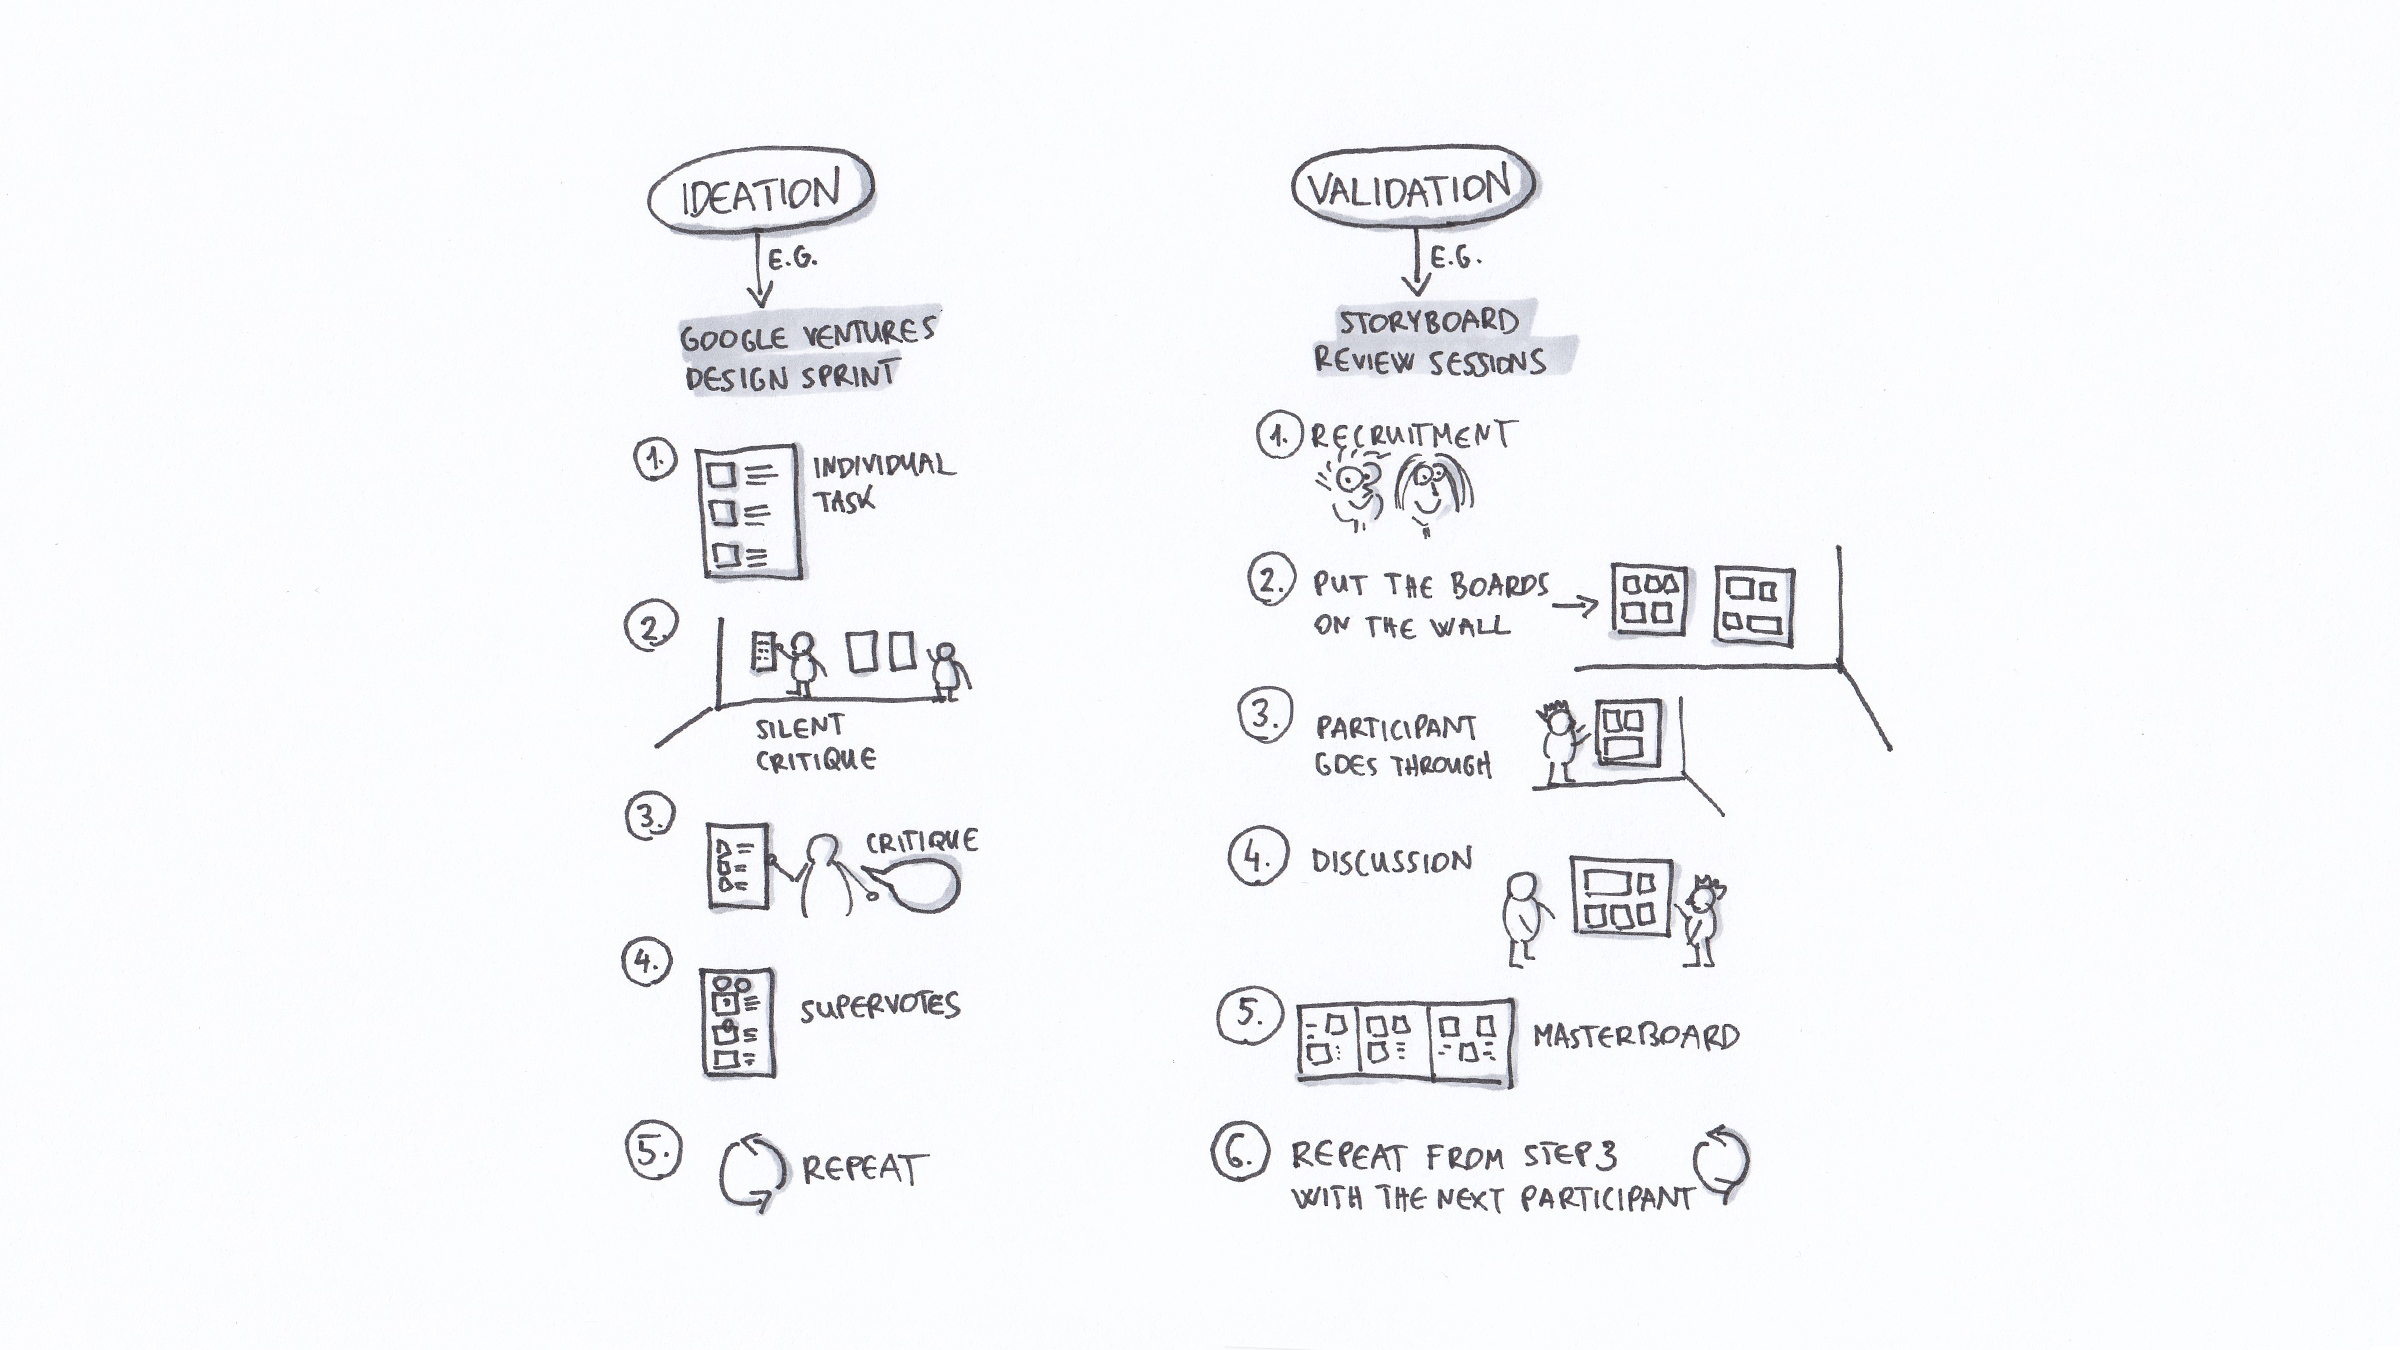 IDEATION
E.G.
GOOGLE VENTURES
DESIGN SPRINT
1.
INDIVIDUAL
TASK
2.
SILENT
CRITIQUE
3.
CRITIQUE
4.
SUPERVOTES
5.
REPEAT
VALIDATION
E.G.
STORYBOARD
REVIEW SESSIONS
1. RECRUITMENT
2. PUT THE BOARDS
ON THE WALL
3. PARTICIPANT
GOES THROUGH
4. DISCUSSION
5. MASTERBOARD
6. REPEAT FROM STEP 3
WITH THE NEXT PARTICIPANT